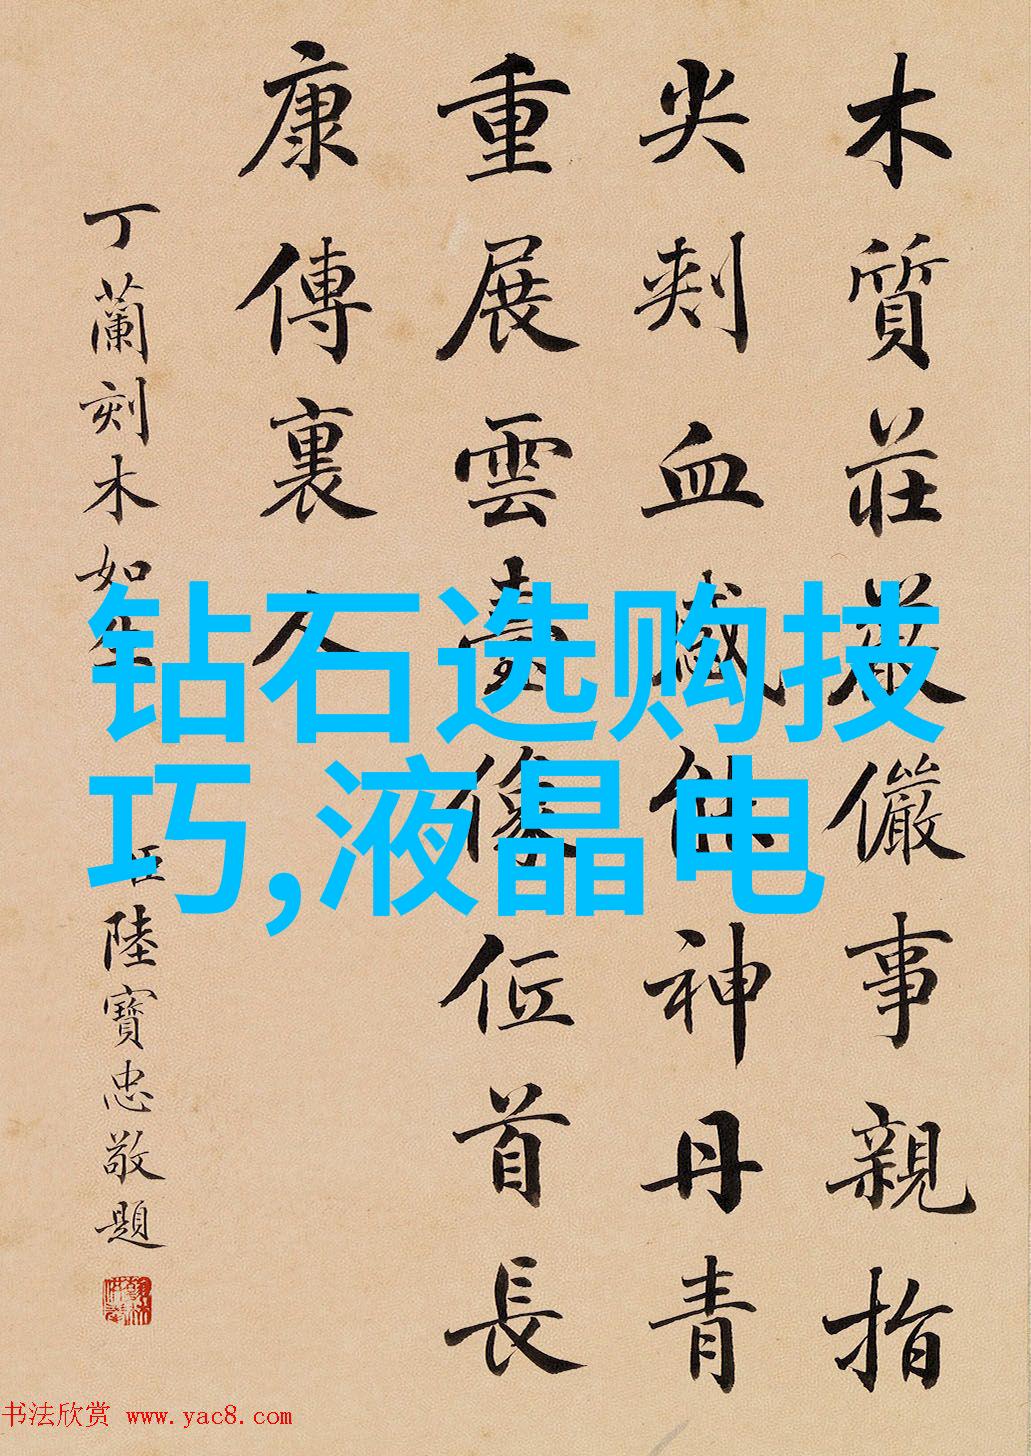 木質莊嚴儼事親指
尖刾血感供神丹青
重展雲臺像位首長
康傳裏人
丁蘭刻木如生
臣陸寶忠敬題
钻石选购技
巧,液晶电
书法欣赏 www.yac8.com